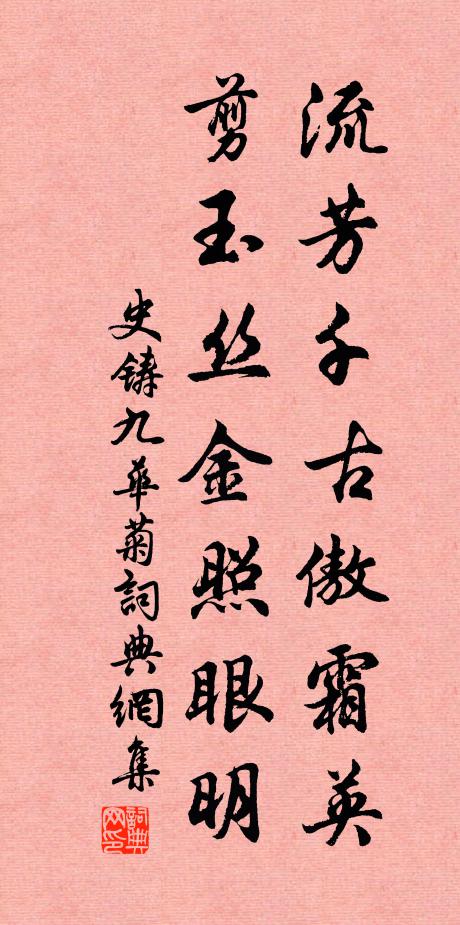 流芳千古傲霜英
剪玉丝金照眼明
史铸九華菊詞典網集
詞典网印